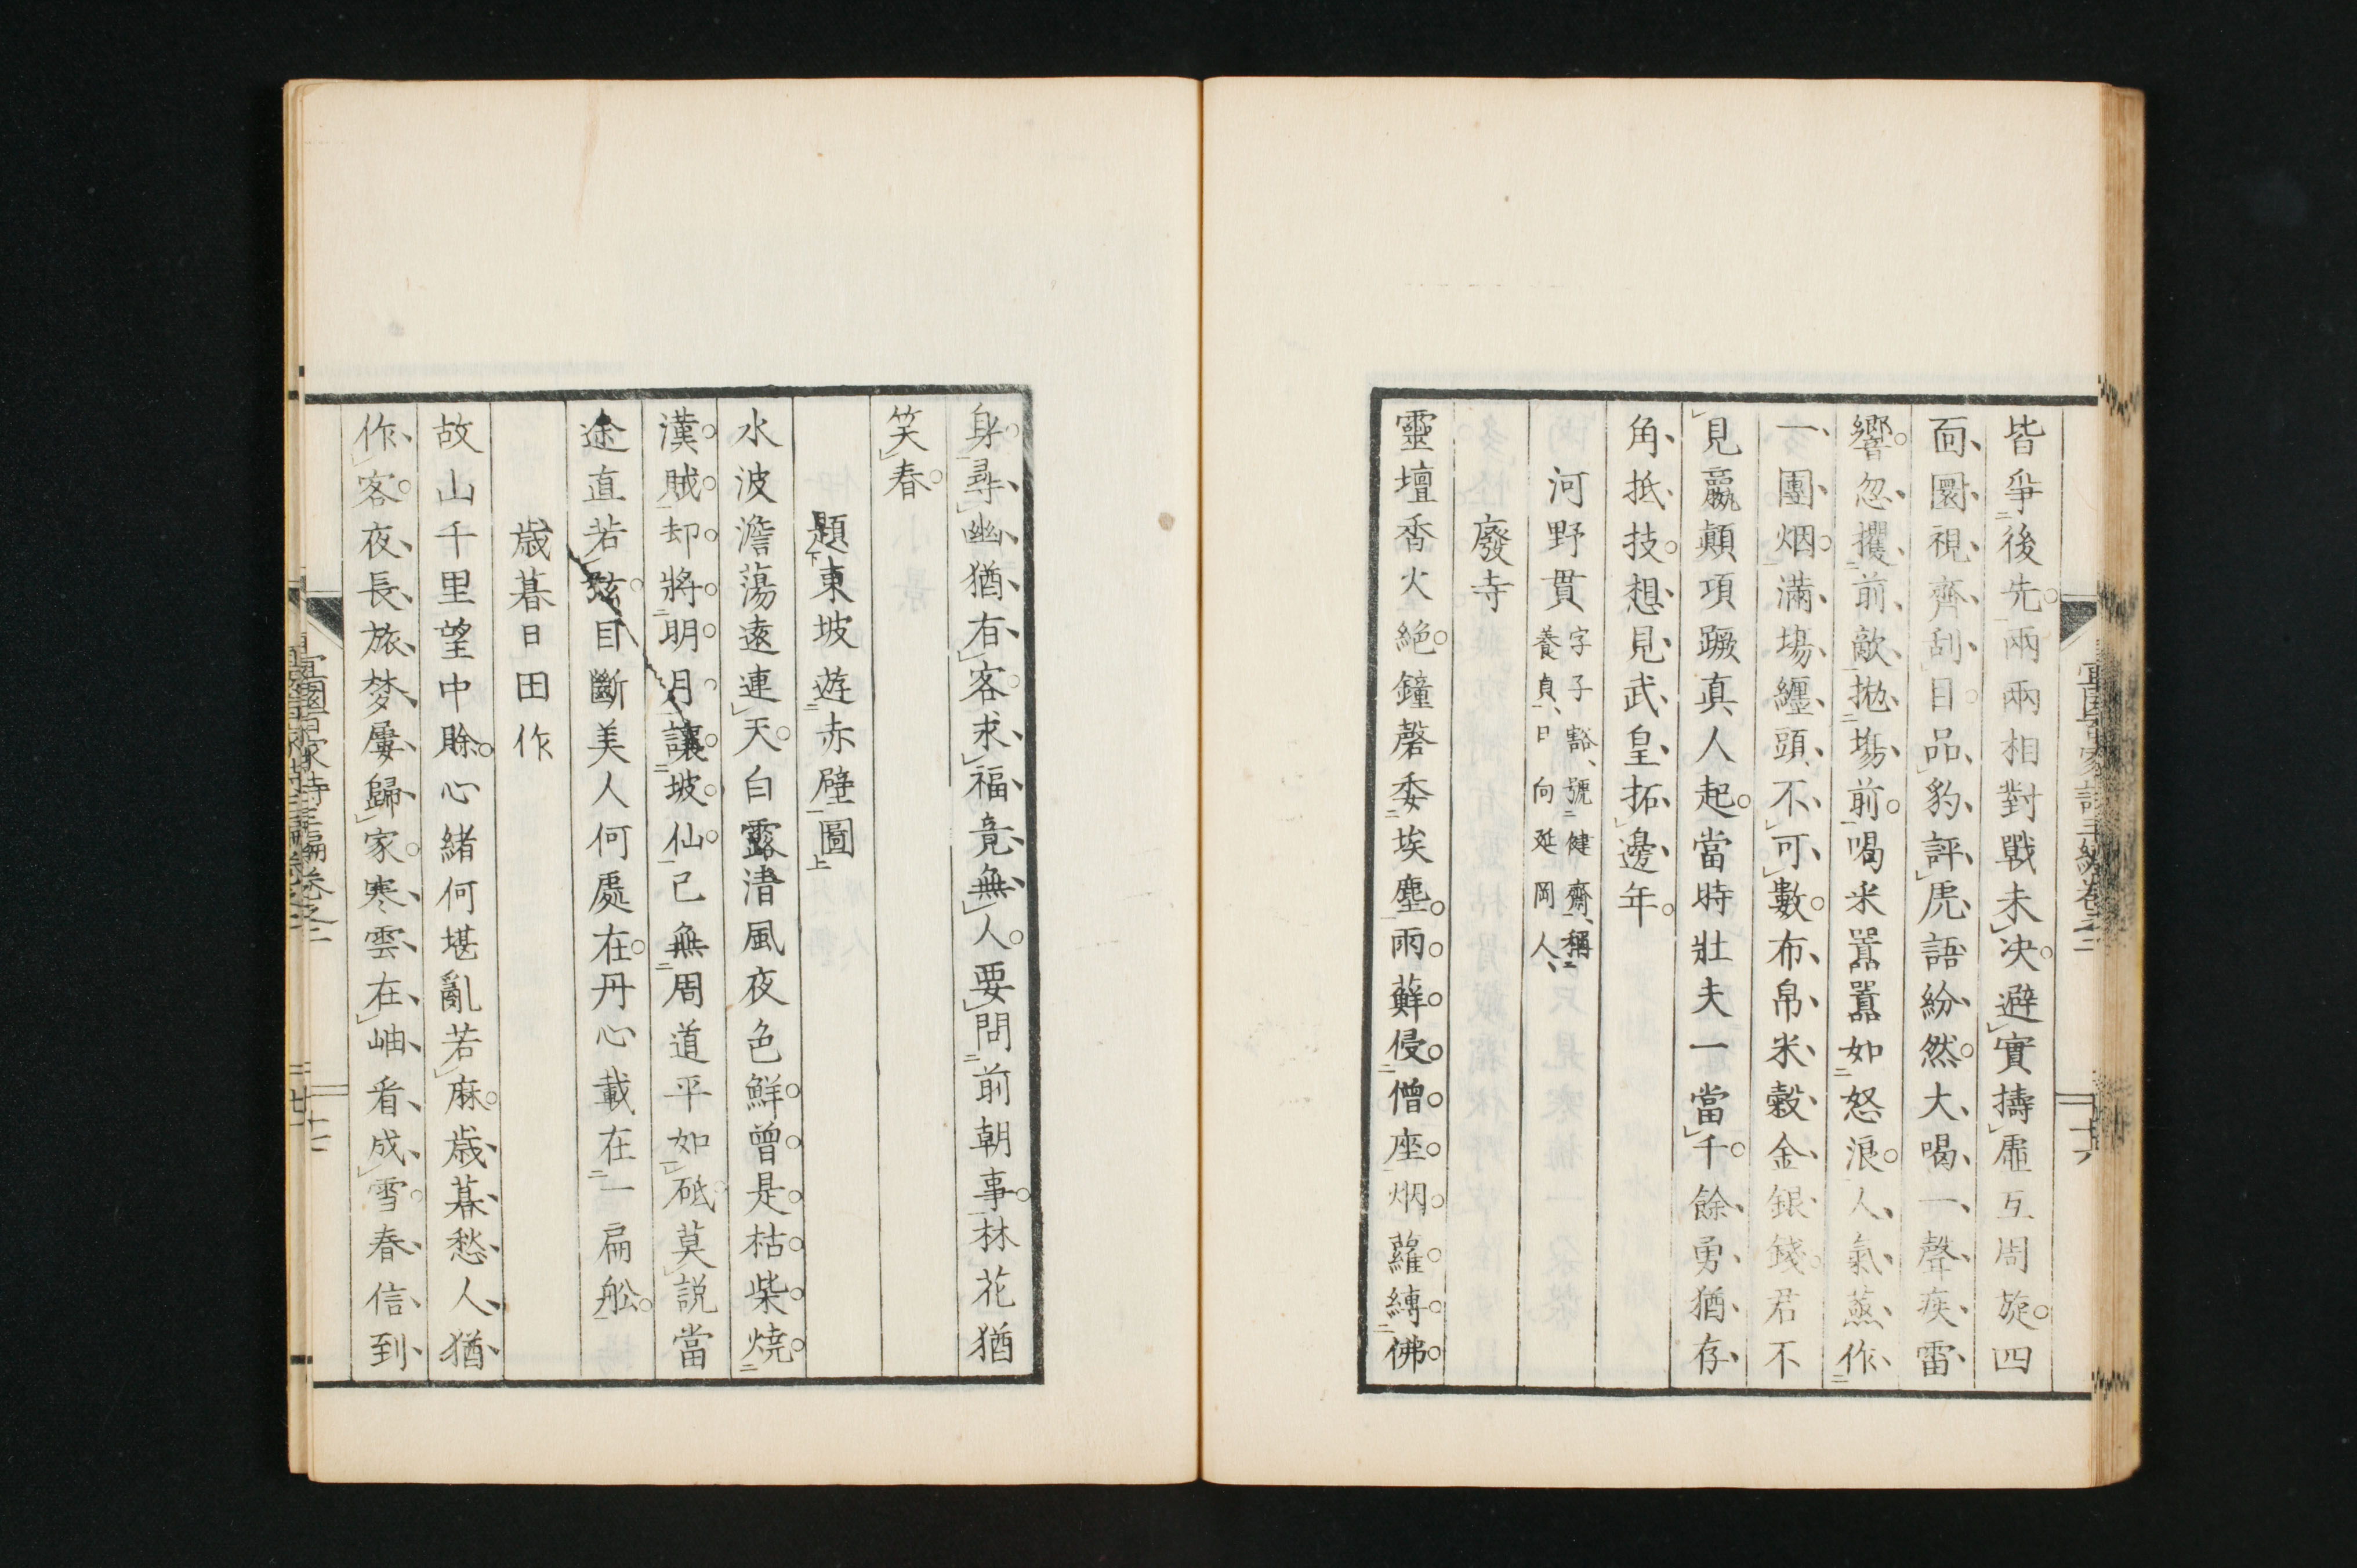 皆爭後先兩兩相對戰未决避實擣虛互周旋四
面圜視齊刮目品豹評虎語紛然大喝一聲疾雷
響忽攫前敵拋塲前喝采囂囂如怒浪人氣蒸作
一團烟滿塲纏頭不可數布帛米穀金銀錢君不
見嬴顛項蹶真人起當時壯夫一當千餘勇猶存
角抵技想見武皇拓邊年
河野貫 字子谿、號健齋、稱
養貞、日向延岡人、
廢寺
靈壇香火絶鐘磬委埃塵雨蘚侵僧座烟蘿縛佛
身尋幽猶有客求福竟無人要問前朝事林花猶
笑春
題東坡遊赤壁圖
水波澹蕩遠連天白露清風夜色鮮曾是枯柴燒
漢賊却將明月讓坡仙已無周道平如砥莫説當
途直若弦目斷美人何處在丹心載在一扁舩
歳暮日田作
故山千里望中賒心緒何堪亂若麻歳暮愁人猶
作客夜長旅夢屢歸家寒雲在岫看成雪春信到